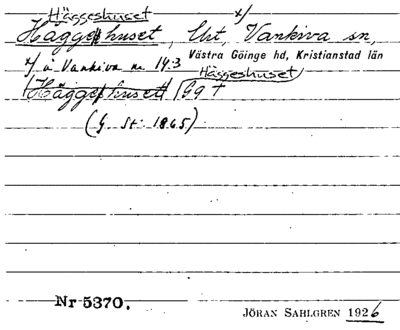 Häggeshuset x/
Häggeshuset, lht, Vankiva sn,
x/ å Vankiva nr 14:3 Västra Göinge hd, Kristianstad län
Häggeshuset
(Häggeshuset) Gg †
(G. St. 1865)
Nr 5370. JÖRAN SAHLGREN 1926